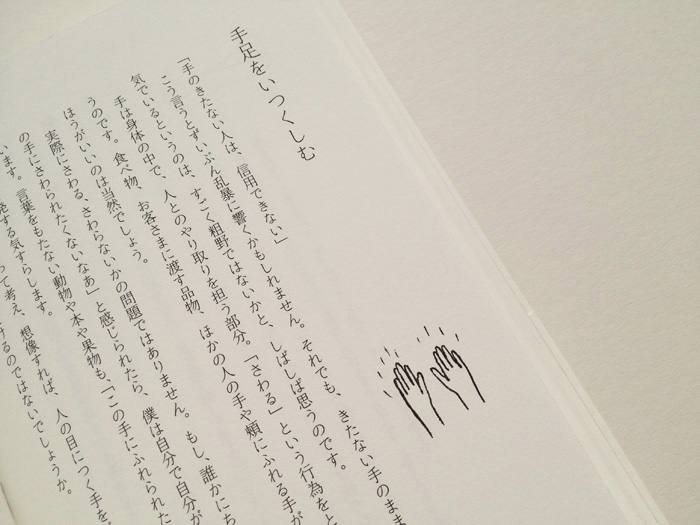 手足をいつくしむ
「手のきたない人は、信用できない」
こう言うとずいぶん乱暴に響くかもしれません。それでも、きたない手のまま
気でいるというのは、すごく粗野ではないかと、しばしば思うのです。
手は身体の中で、人とのやり取りを担う部分。「さわる」という行為をと
うのです。食べ物、お客さまに渡す品物、ほかの人の手や頰にふれる手が
ほうがいいのは当然でしょう。
実際にさわる、さわらないかの問題ではありません。もし、誰かにち
の手にさわられたくないなあ」と感じられたら、僕は自分で自分が
います。言葉をもたない動物や本や果物も、「この手にふれられた
発する気すらします。
って考え、想像すれば、人の目につく手を
けるのではないでしょうか。